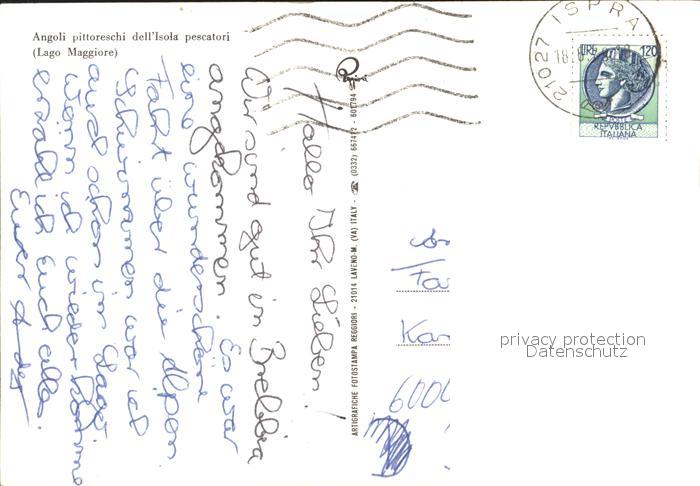 Angoli pittoreschi dell'Isola pescatori
(Lago Maggiore)
Hallo Ihr Lieben!
Wir sind gut in Brebbia
angekommen. Es war
eine wunderschöne
Fahrt über die Alpen.
Schwimmen war ich
auch schon im Lago.
Wenn ich wieder komme
erzähl ich Euch alles.
Euer
ARTIGRAFICHE FOTOSTAMPA REGGIORI - 21014 LAVENO-M. (VA) ITALY - ☎ (0332) 667472 - 601794
21027 ISPRA
18
LIRE 120
REPVBBLICA
ITALIANA
An
Fa
Kar
6000
privacy protection
Datenschutz